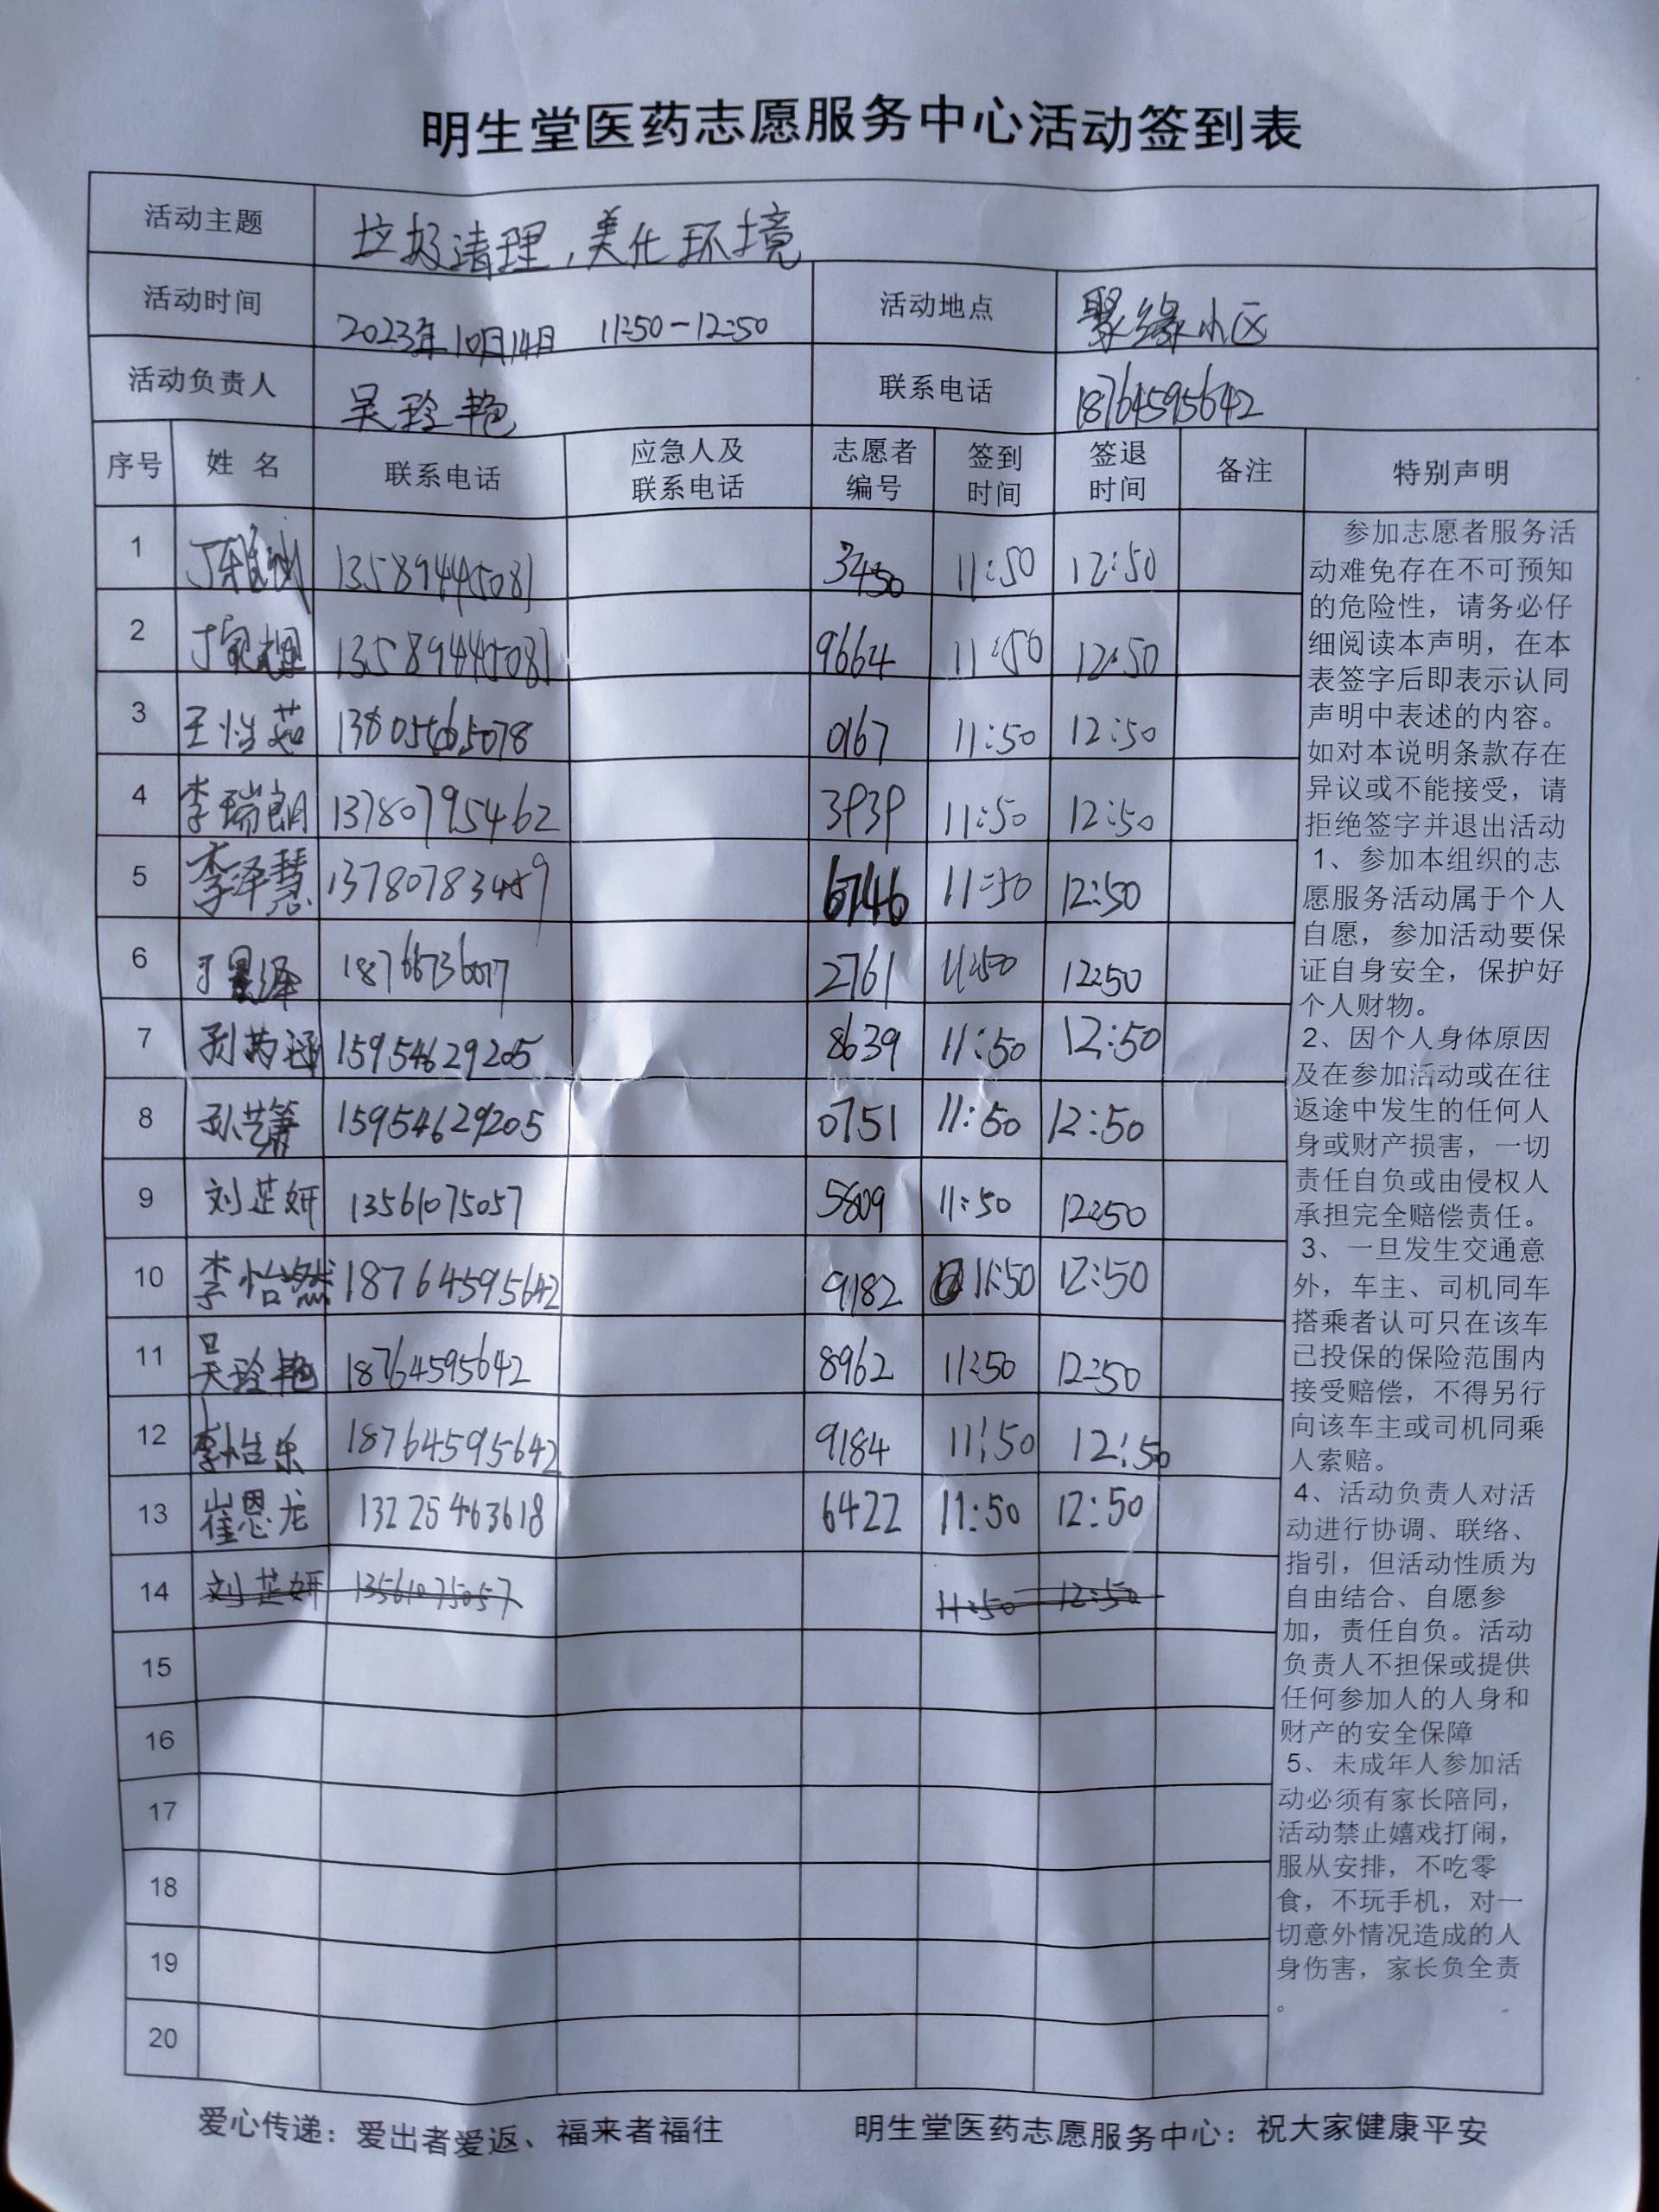 明生堂医药志愿服务中心活动签到表
活动主题 垃圾清理，美化环境
活动时间 2023年10月14日 11:50-12:50 活动地点 聚缘小区
活动负责人 吴玲艳 联系电话 18764595642
序号 姓名 联系电话 应急人及联系电话 志愿者编号 签到时间 签退时间 备注 特别声明
1 13589445081 3450 11:50 12:50
2 13589445081 9664 11:50 12:50
3 王怡茹 0167 11:50 12:50
4 李瑞朗 13780795462 3939 11:50 12:50
5 李泽慧 6746 11:50 12:50
6 2761 11:50 12:50
7 15954629205 8639 11:50 12:50
8 15954629205 0751 11:50 12:50
9 刘芷妍 13561075057 5809 11:50 12:50
10 李怡然 18764595642 9182 11:50 12:50
11 吴玲艳 18764595642 8962 11:50 12:50
12 李怡乐 18764595642 9184 11:50 12:50
13 崔恩龙 13225463618 6422 11:50 12:50
14 刘芷妍 13561075057 11:50 12:50
15
16
17
18
19
20
参加志愿者服务活
动难免存在不可预知
的危险性，请务必仔
细阅读本声明，在本
表签字后即表示认同
声明中表述的内容。
如对本说明条款存在
异议或不能接受，请
拒绝签字并退出活动
1、参加本组织的志
愿服务活动属于个人
自愿，参加活动要保
证自身安全，保护好
个人财物。
2、因个人身体原因
及在参加活动或在往
返途中发生的任何人
身或财产损害，一切
责任自负或由侵权人
承担完全赔偿责任。
3、一旦发生交通意
外，车主、司机同车
搭乘者认可只在该车
已投保的保险范围内
接受赔偿，不得另行
向该车主或司机同乘
人索赔。
4、活动负责人对活
动进行协调、联络、
指引，但活动性质为
自由结合、自愿参
加，责任自负。活动
负责人不担保或提供
任何参加人的人身和
财产的安全保障
5、未成年人参加活
动必须有家长陪同，
活动禁止嬉戏打闹，
服从安排，不吃零
食，不玩手机，对一
切意外情况造成的人
身伤害，家长负全责
。
爱心传递：爱出者爱返、福来者福往 明生堂医药志愿服务中心：祝大家健康平安